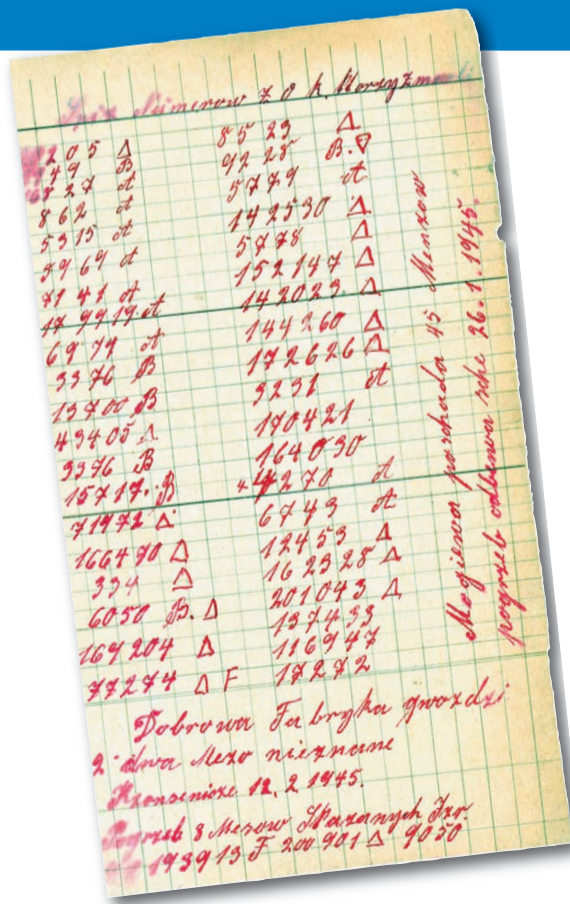 Spis Numerow z o k.
205 Δ
79 B
6727 A
862 A
5315 A
3969 A
7141 A
179919 A
6979 A
3376 B
13700 B
43405 Δ
3376 B
15717. B
71972 Δ
166470 Δ
334 Δ
6050 B. Δ
169204 Δ
77274 Δ F
8523 Δ
9228 B. ∇
5779 A
142530 Δ
5778 Δ
152147 Δ
142023 Δ
144260 Δ
172626 Δ
3231 A
170421
164030
+4270 A
6743 A
12453 Δ
162328 Δ
201043 Δ
137433
116947
17272
Mogiena poschada 45 Menzow
pogrzeb odbewa sche 26.1.1945.
Dobrowa Fabryka gwozdzi
2 dwa Mezo nieznane
12.2 1945.
Pogrzeb 3 Mesow Skazanych
193913 F 200901 Δ 9050